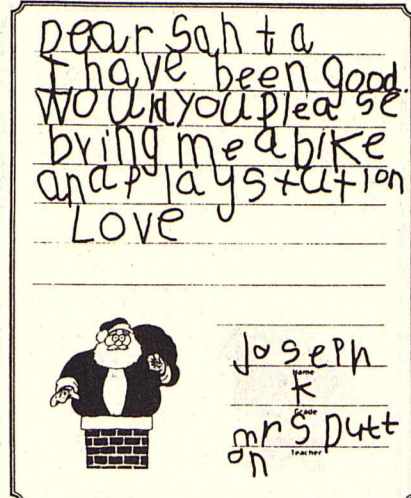 Dear Santa
I have been good.
would you please
bring me a bike
and a playstation
Love
Joseph
Name
K
Grade
mrs Dutt
on
Teacher